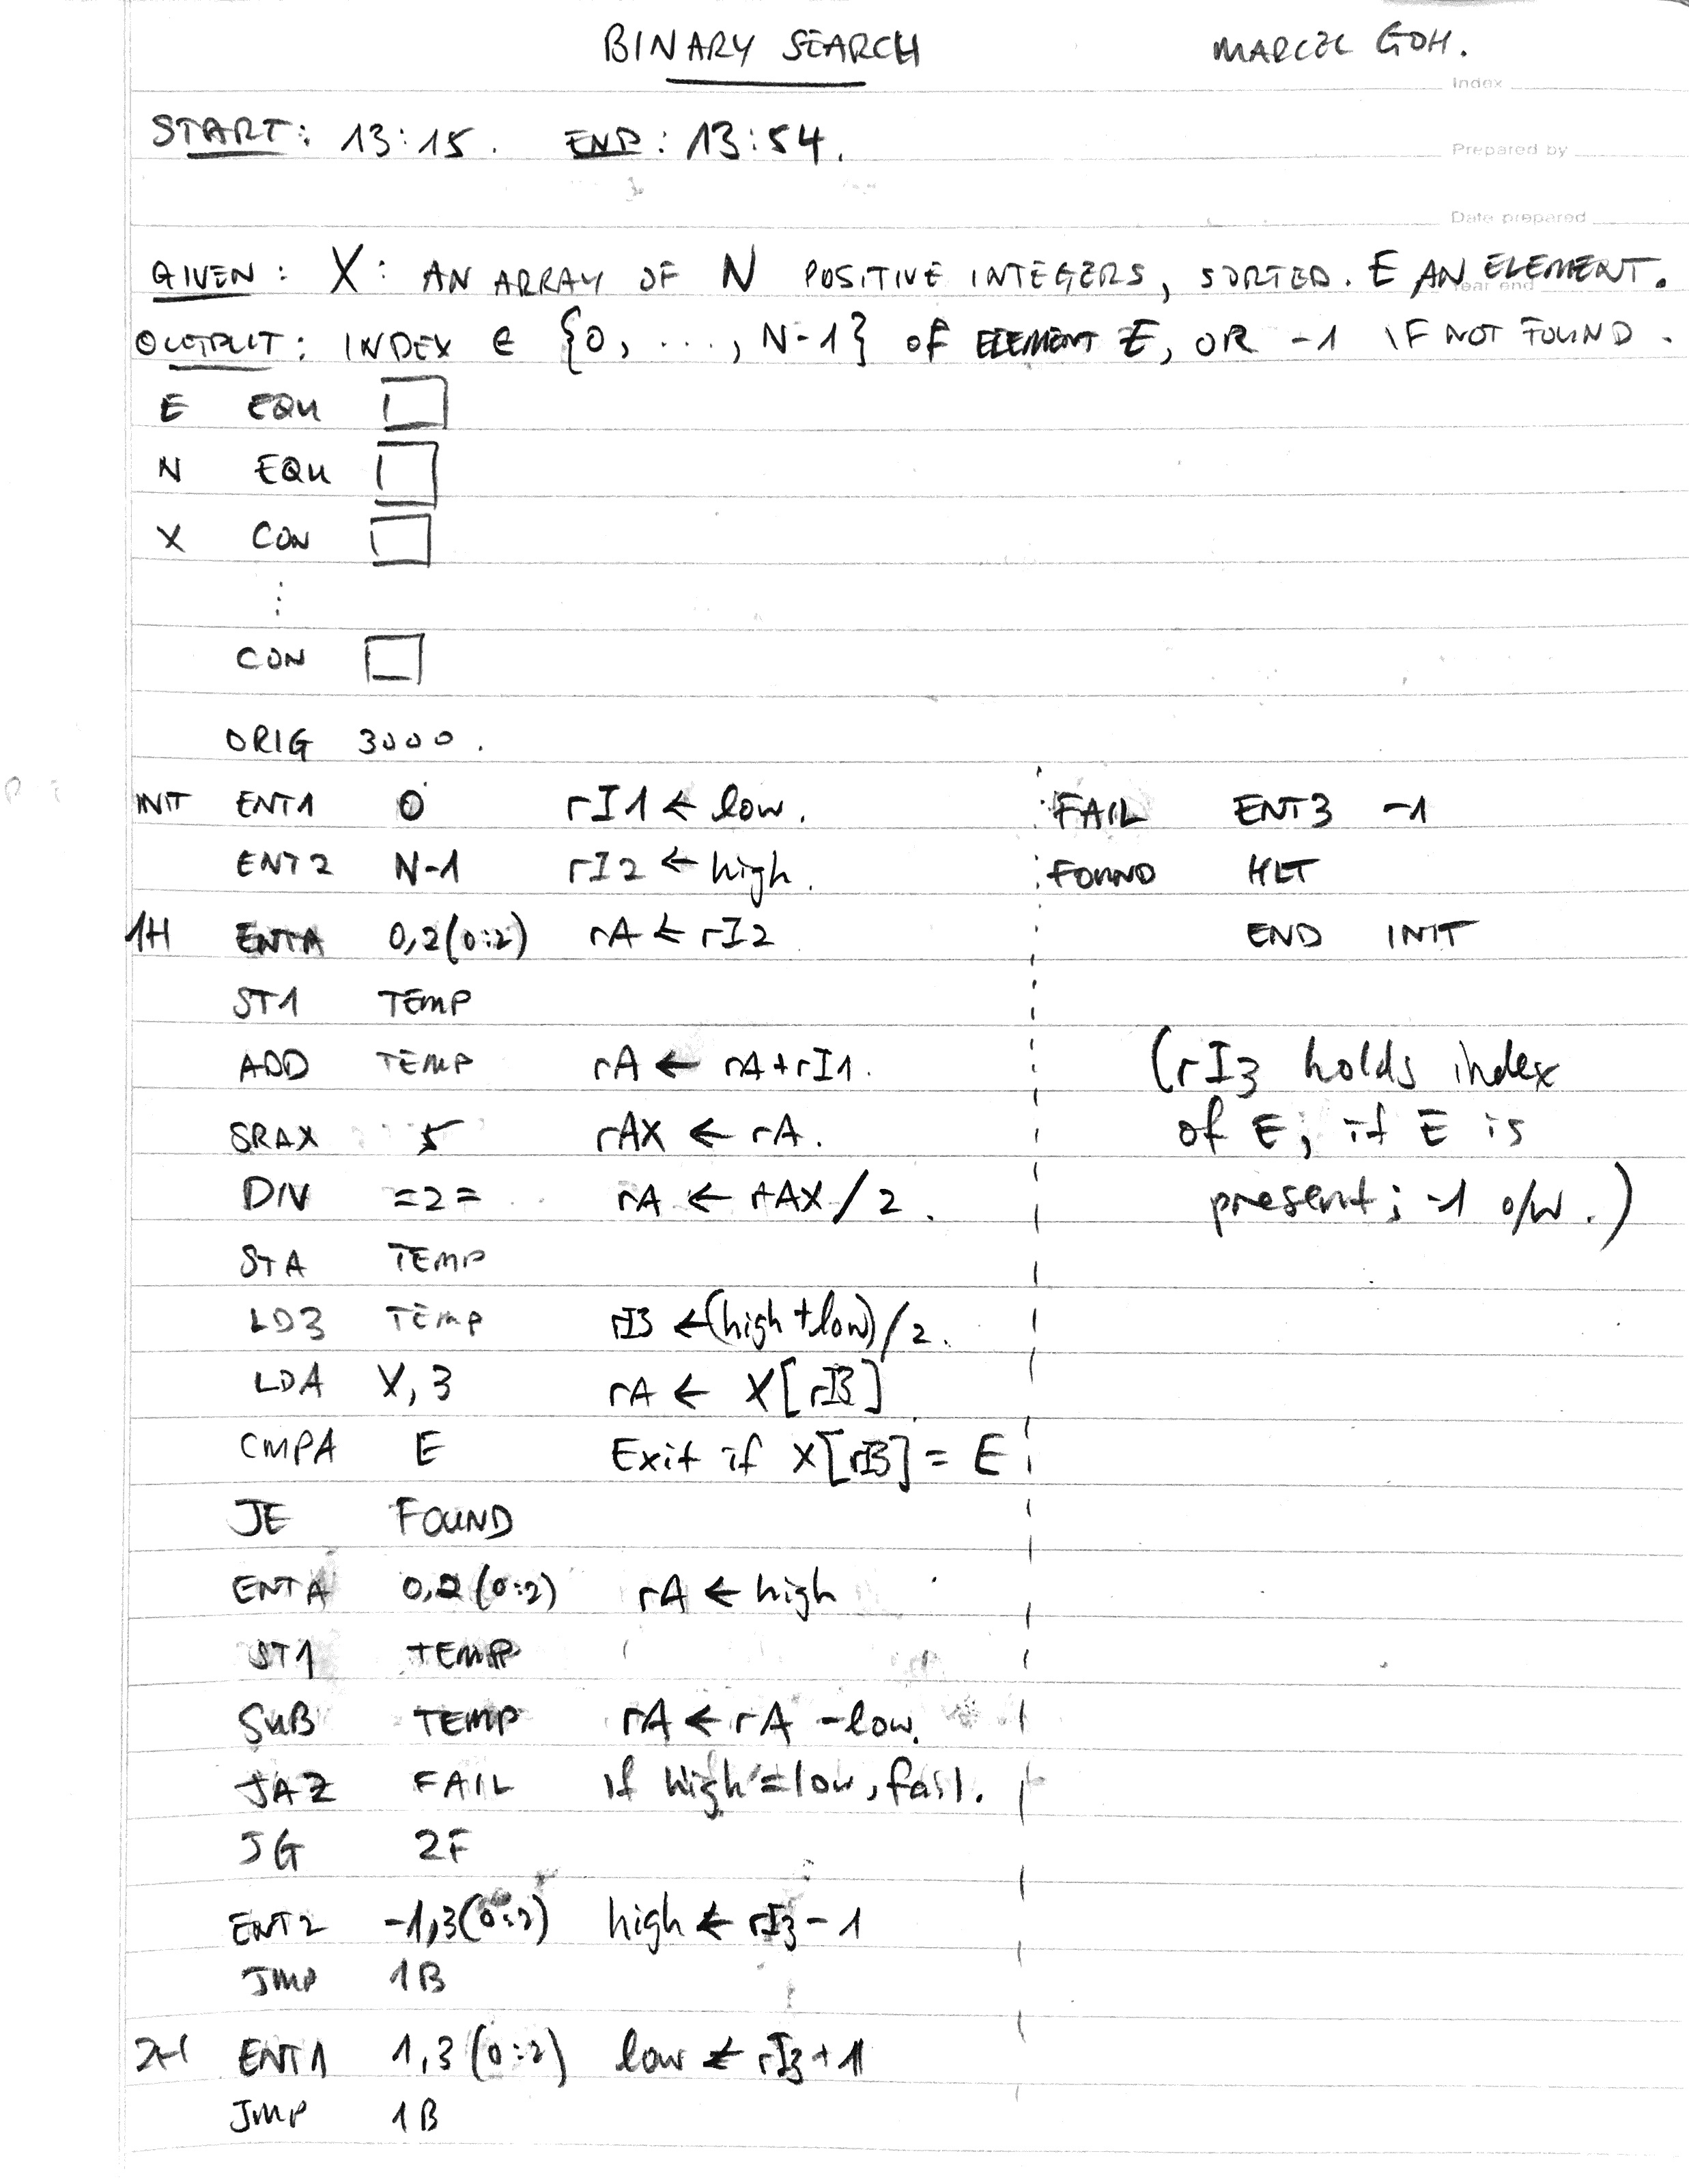 BINARY SEARCH MARCEL GOH.
Index
START: 13:15. END: 13:54.
Prepared by
Date prepared
GIVEN: X: AN ARRAY OF N POSITIVE INTEGERS, SORTED. E AN ELEMENT.
Year end
OUTPUT: INDEX ∈ {0, ..., N-1} OF ELEMENT E, OR -1 IF NOT FOUND.
E EQU
N EQU
X CON
⋮
CON
ORIG 3000.
INIT ENT1 0 rI1 ← low.
ENT2 N-1 rI2 ← high.
1H ENTA 0,2(0:2) rA ← rI2
ST1 TEMP
ADD TEMP rA ← rA+rI1.
SRAX 5 rAX ← rA.
DIV =2= rA ← rAX/2.
STA TEMP
LD3 TEMP rI3 ← (high+low)/2.
LDA X,3 rA ← X[rI3]
CMPA E Exit if X[rI3] = E
JE FOUND
ENTA 0,2(0:2) rA ← high
ST1 TEMP
SUB TEMP rA ← rA - low.
JAZ FAIL if high = low, fail.
JG 2F
ENT2 -1,3(0:2) high ← rI3-1
JMP 1B
2H ENT1 1,3(0:2) low ← rI3+1
JMP 1B
FAIL ENT3 -1
FOUND HLT
END INIT
(rI3 holds index
of E, if E is
present; -1 o/w.)